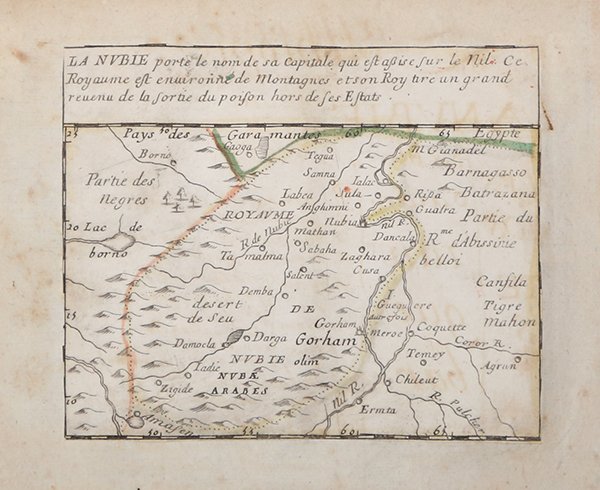 LA NVBIE porte le nom de sa Capitale qui est assise sur le Nil. Ce
Royaume est environné de Montagnes et son Roy tire un grand
revenu de la sortie du poison hors de ses Estats.
25 Pays des Garamantes 60 65 Egypte
Gaoga
Borno
Tegua
mt Gianadel
Partie des
Negres
Samna
Ialac
Barnagasso
Batrazana
Labea
Sula
Ripa
ROYAVME
Anghimni
Gualra
Partie du
20 Lac de
borno
R de Nubie
Mathan
Nubia
nil F.
Tamalma
Sabaha
Dancala
Rme d'Abissinie
belloi
Zaghara
Salent
Cusa
Cansila
Demba
DE
I
Gueguere
autrefois
Tigre
Mahon
desert
de Seu
15
Gorham
Meroe
Coquette
Damocla
Darga
Gorham
Coror R.
NVBIE olim
Temey
Agrun
Tadie
NVBÆ
ARABES
Zigide
Chileut
10
Amasen
nil R.
Ermta
50
60
65